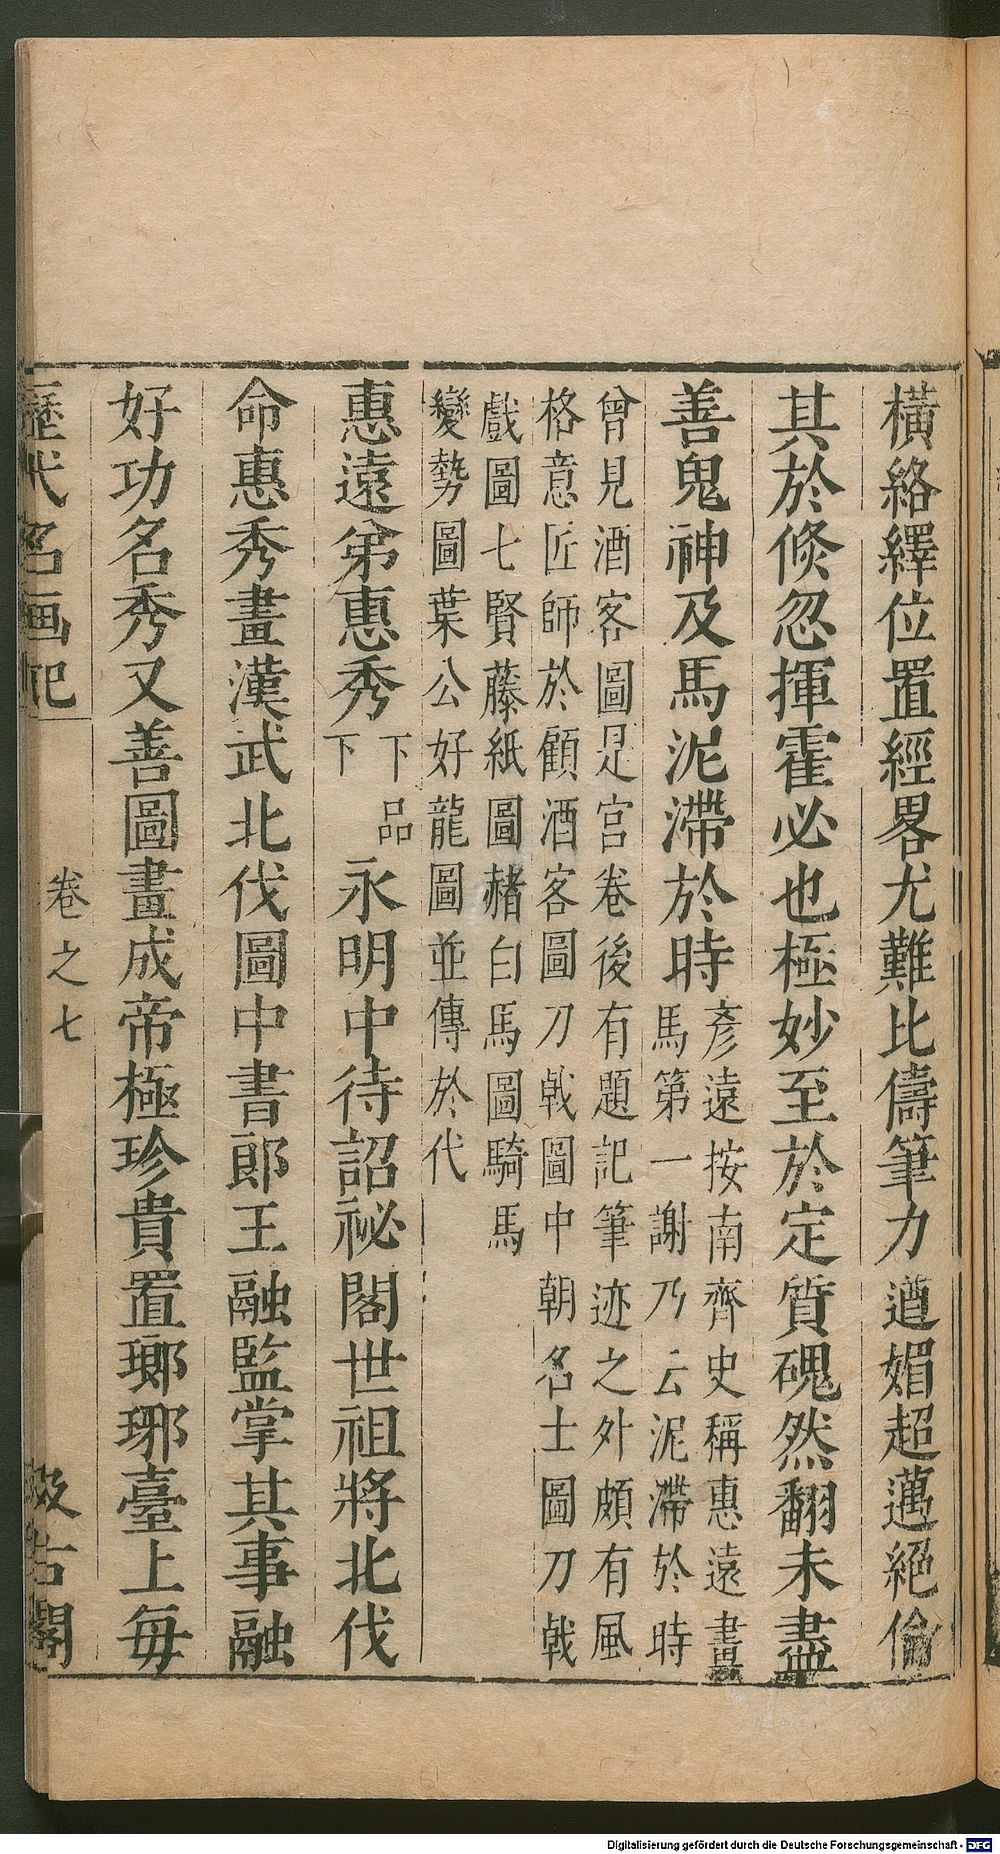 橫絡繹位置經畧尤難比儔筆力遒媚超邁絕倫
其於倐忽揮霍必也極妙至於定質磈然翻未盡
善鬼神及馬泥滯於時
彥遠按南齊史稱惠遠畫
馬第一謝乃云泥滯於時
曾見酒客圖是宫卷後有題記筆迹之外頗有風
格意匠師於顧酒客圖刀戟圖中朝名士圖刀戟
戲圖七賢藤紙圖赭白馬圖騎馬
變勢圖葉公好龍圖並傳於代
惠遠弟惠秀
下品
下
永明中待詔祕閣世祖將北伐
命惠秀畫漢武北伐圖中書郎王融監掌其事融
好功名秀又善圖畫成帝極珍貴置瑯琊臺上每
歷代名画記
卷之七
汲古閣
Digitalisierung gefördert durch die Deutsche Forschungsgemeinschaft - DFG